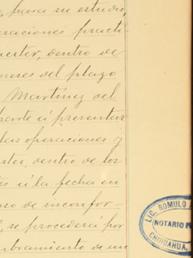 para su estudio,
raciones practi
dentro de
meses del plazo
Martínez del
presentar
las operaciones y
dentro de los
la fecha en
so de inconfor
se procederá por
bramiento de un
LIC. ROMULO
NOTARIO P
CHIHUAHUA,